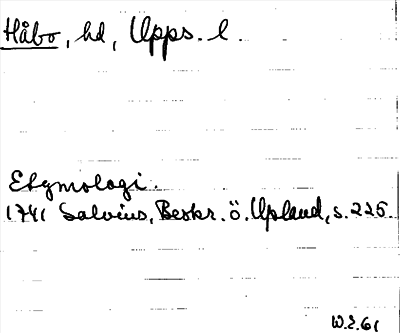 Håbo, hd, Upps. l.
Etymologi.
1741 Salvius, Beskr. ö. Upland, s. 226.
W.E.61